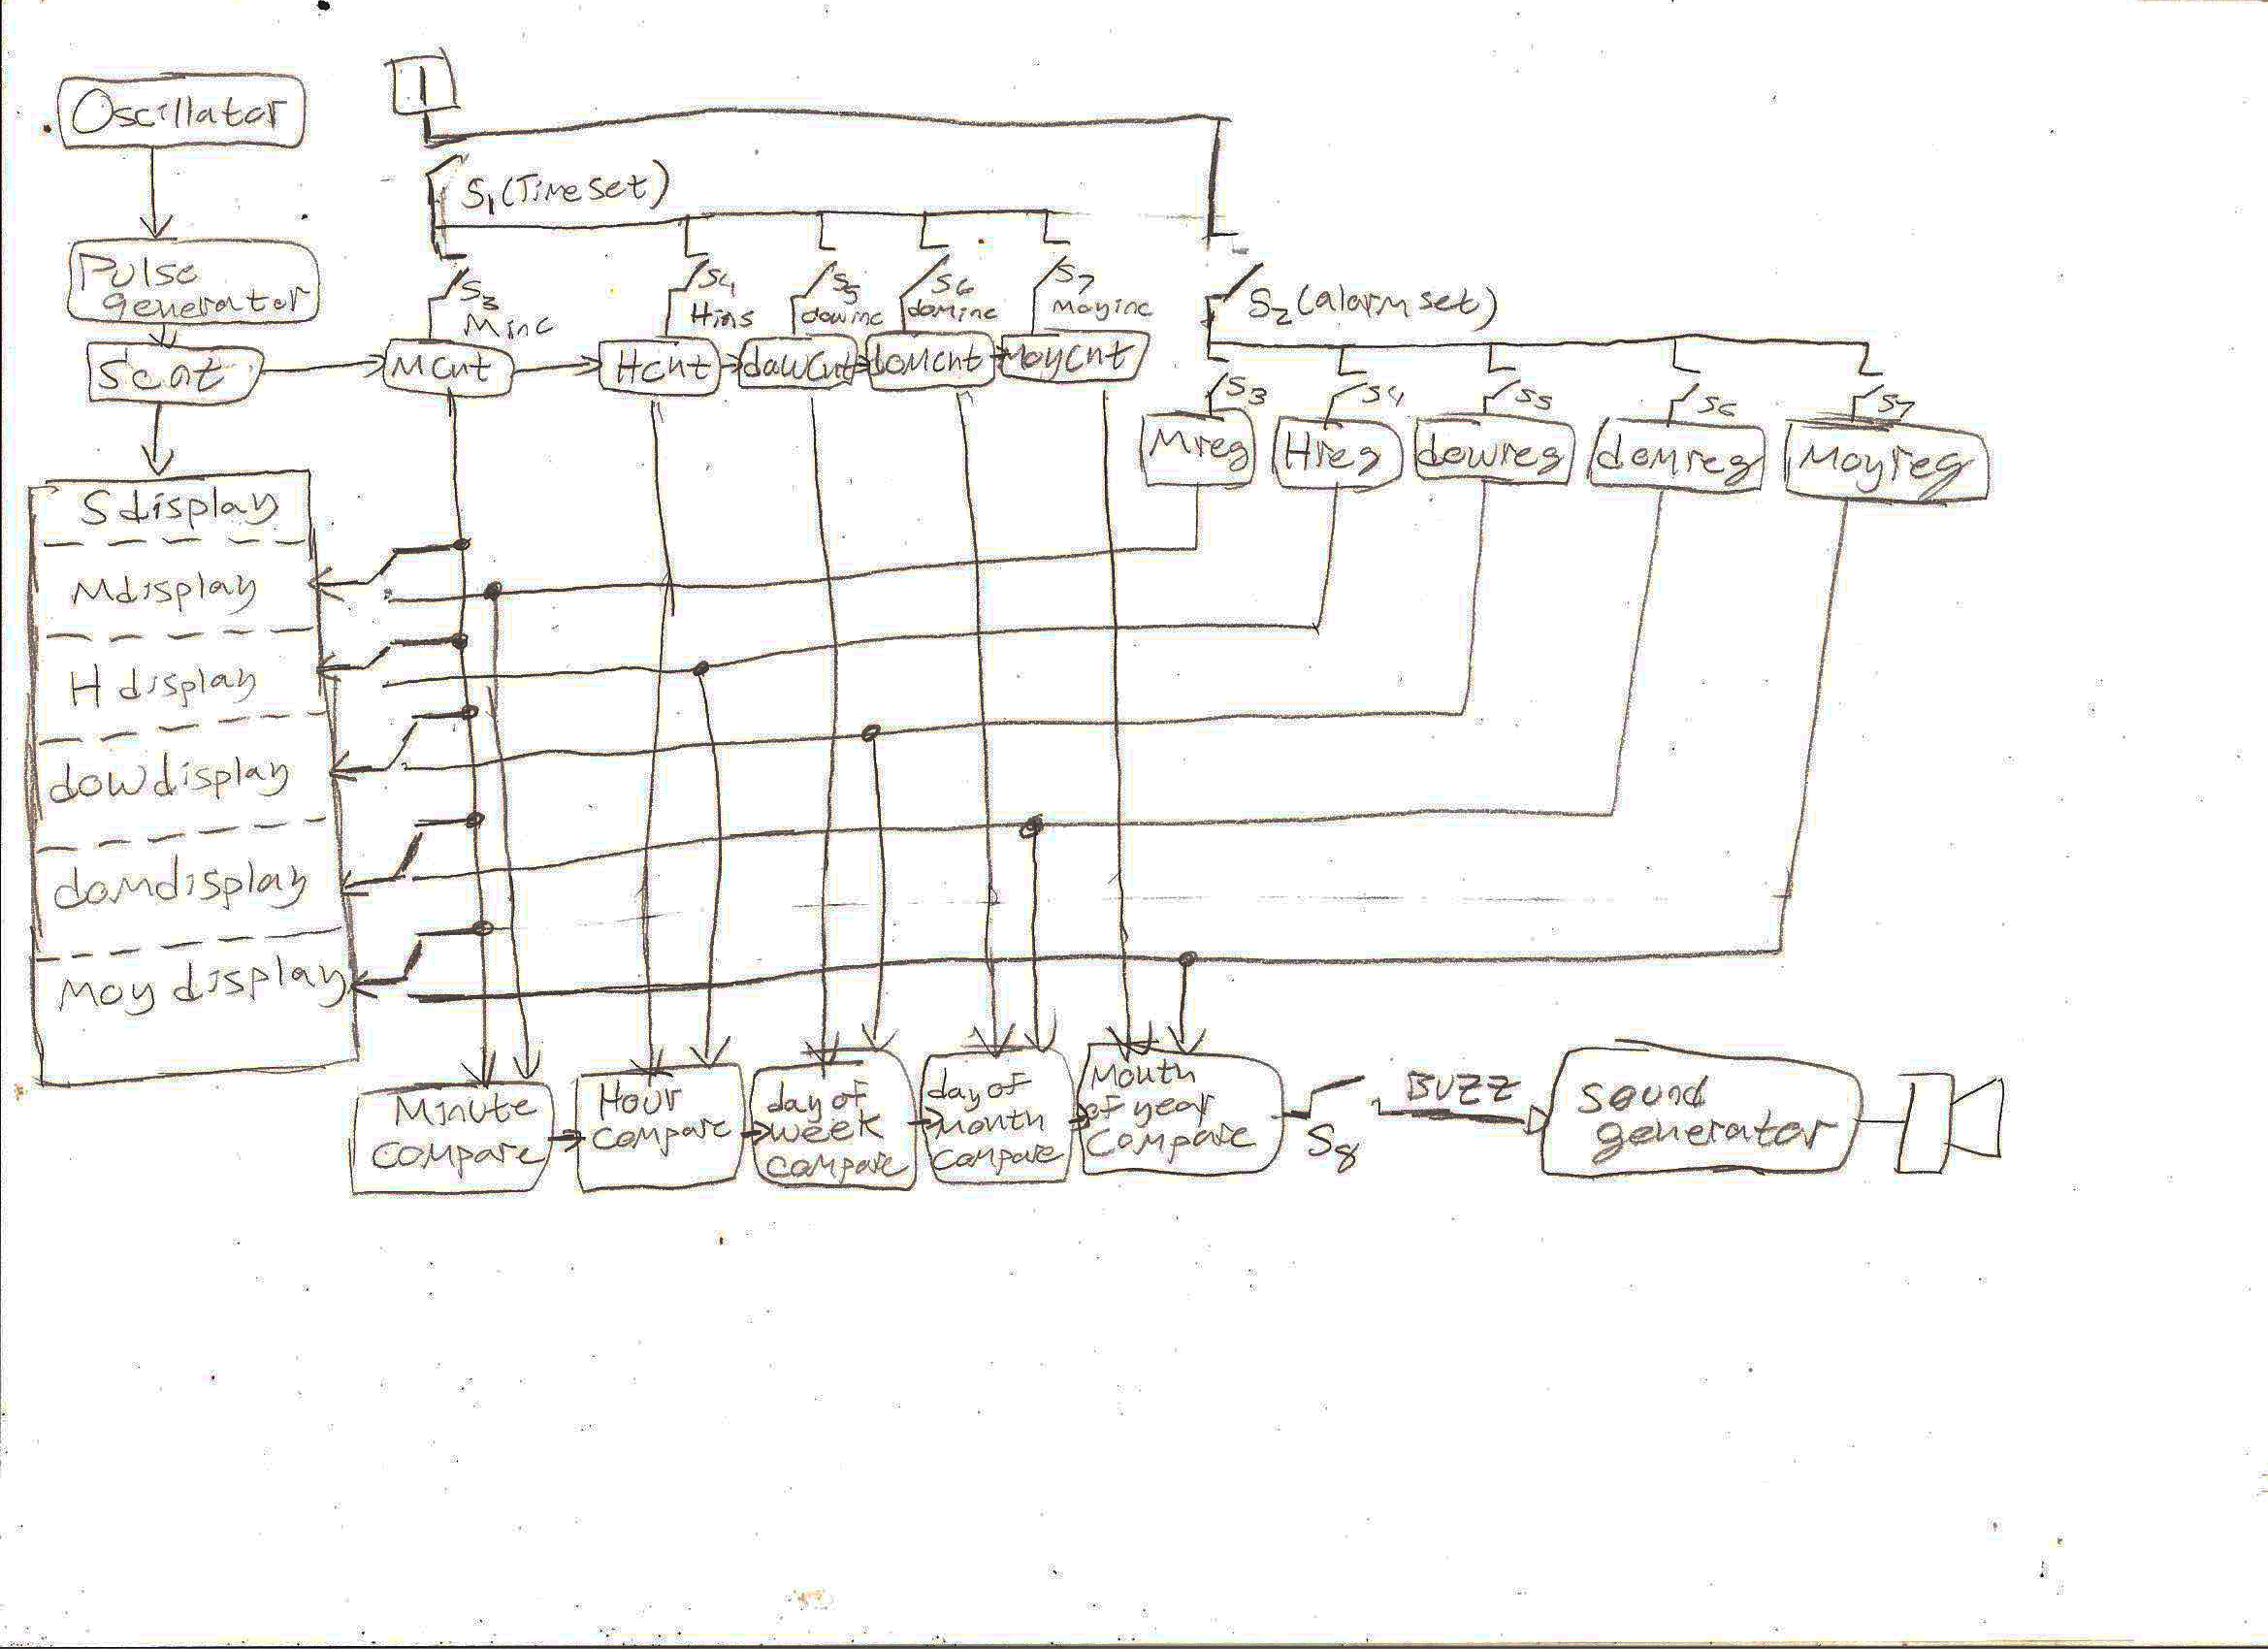 Oscillator
1
S1 (Time set)
Pulse
generator
S3
Minc
S4
Hins
S5
dowinc
S6
dominc
S7
Moyinc
S2 (alarm set)
Scnt
MCnt
HCnt
dowCnt
domCnt
MoyCnt
S3
S4
S5
S6
S7
Mreg
Hreg
dowreg
domreg
Moyreg
Sdisplay
Mdisplay
H display
dowdisplay
domdisplay
Moy display
Minute
compare
Hour
compare
day of
week
compare
day of
month
compare
Month
of year
Compare
S8
BUZZ
Sound
generator